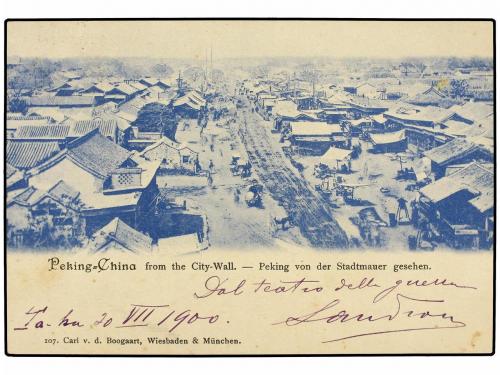 Peking-China from the City-Wall. — Peking von der Stadtmauer gesehen.
Dal teatro della guerra
Ta-ku 20 VII 1900.
107. Carl v. d. Boogaart, Wiesbaden & München.